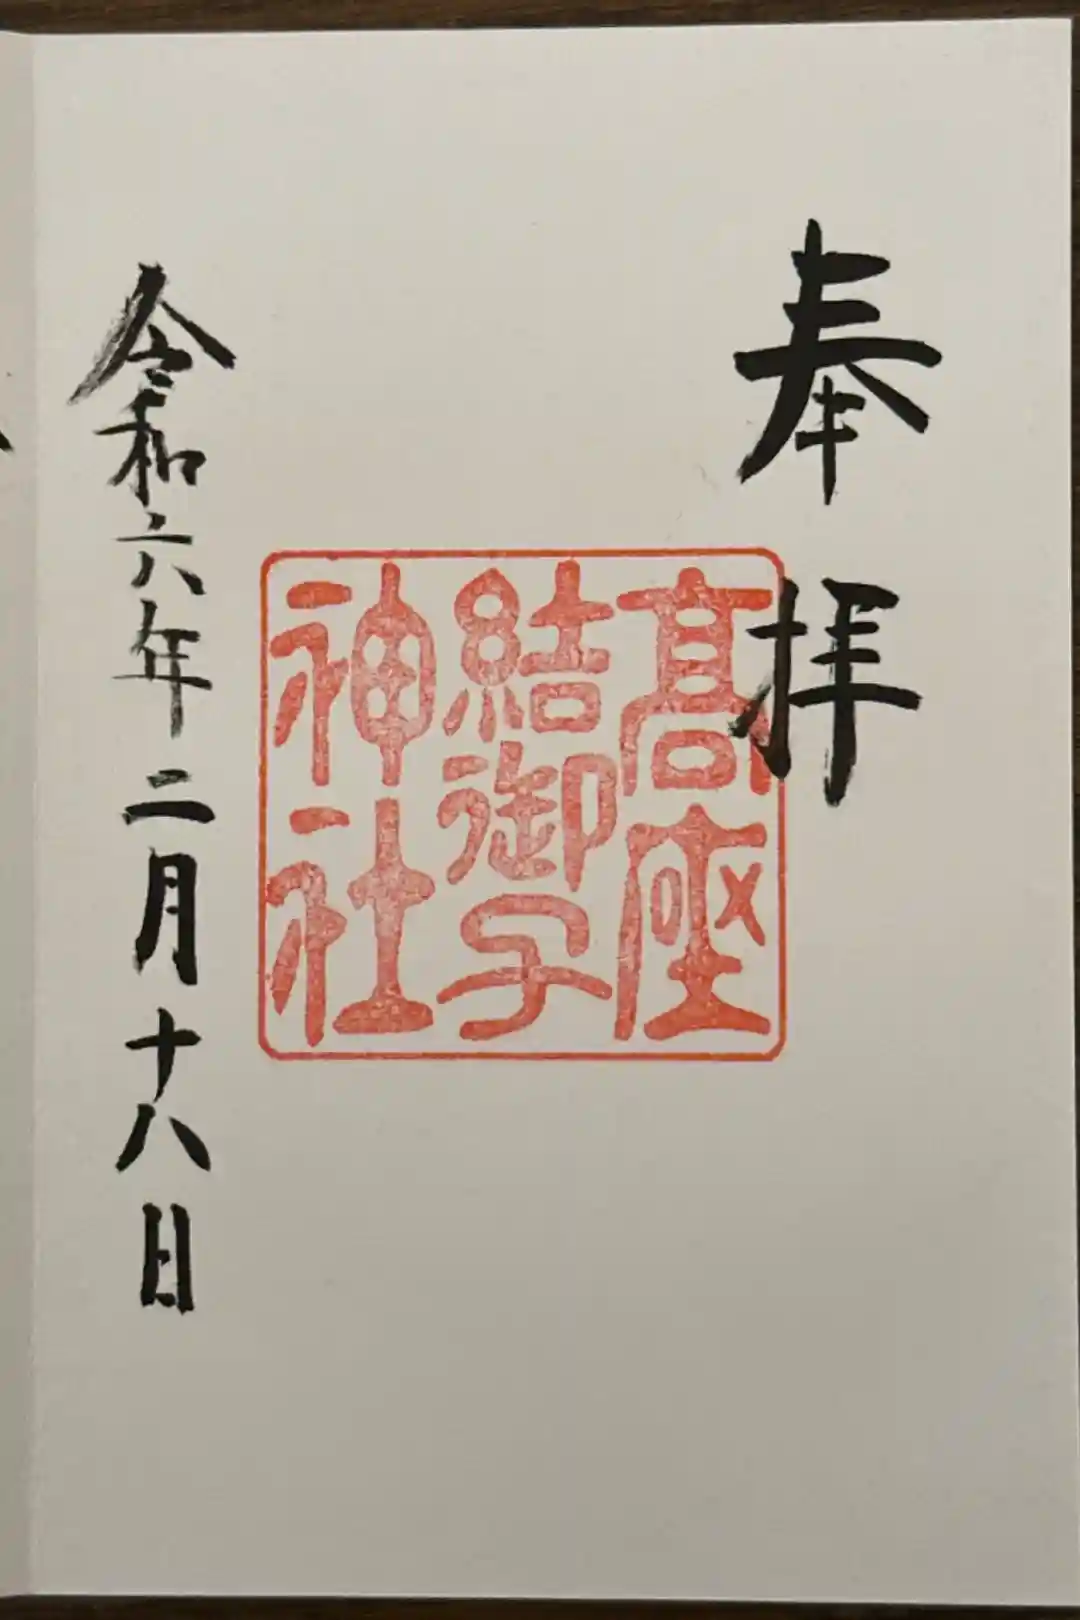 奉拝
髙座
結御子
神社
令和六年二月十八日